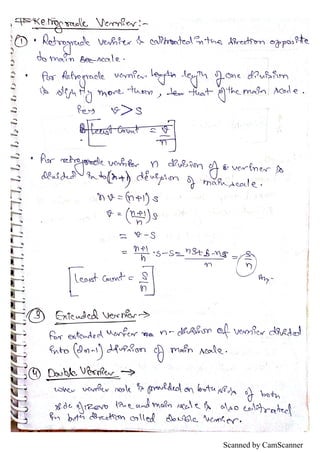 Retrograde Vernier:-
① • Retrograde vernier is calibrated in the direction opposite
to main scale.
• For Retrograde vernier length of one division
is slightly more than that of the main scale.
v > S
Least Count = v/n
• For retrograde vernier n division of vernier is
divided into (n+1) division of main scale.
nv = (n+1) s
v = (n+1)/n s
= v - s
= n+1/n . s - s = ns+s-ns/n = s/n
Least Count = s/n
Ans.
③ Extended Vernier →
For extended vernier n division of vernier divided
into (2n-1) division of main scale.
④ Double Vernier →
When vernier scale is provided on both side of both
side of zero line and main scale is also calibrated
in both direction called double vernier.
Scanned by CamScanner